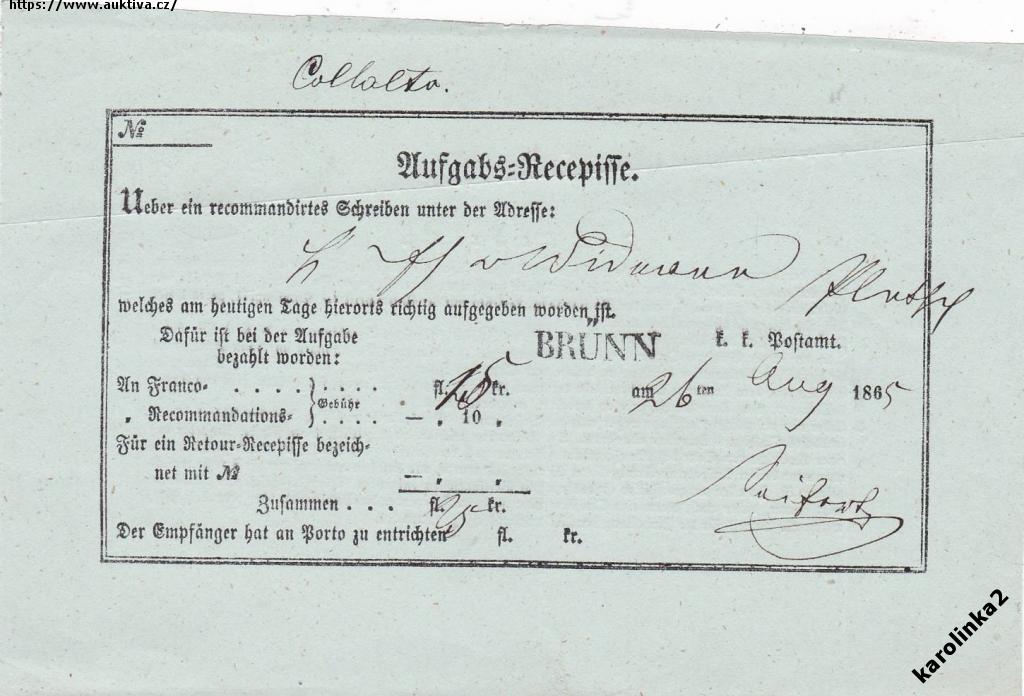 https://www.auktiva.cz/
Collalto.
№
Aufgabs-Recepisse.
Ueber ein recommandirtes Schreiben unter der Adresse:
v Widmann
welches am heutigen Tage hierorts richtig aufgegeben worden ist.
Dafür ist bei der Aufgabe
bezahlt worden:
BRÜNN k. k. Postamt.
An Franco- . . . . . . . . fl. 15 kr.
am 26 ten Aug 1865
„ Recommandations- Gebühr . . . . — „ 10 „
Für ein Retour-Recepisse bezeich-
net mit № — „ „
Zusammen . . . fl. 25 kr.
Seifert
Der Empfänger hat an Porto zu entrichten fl. kr.
karolinka2